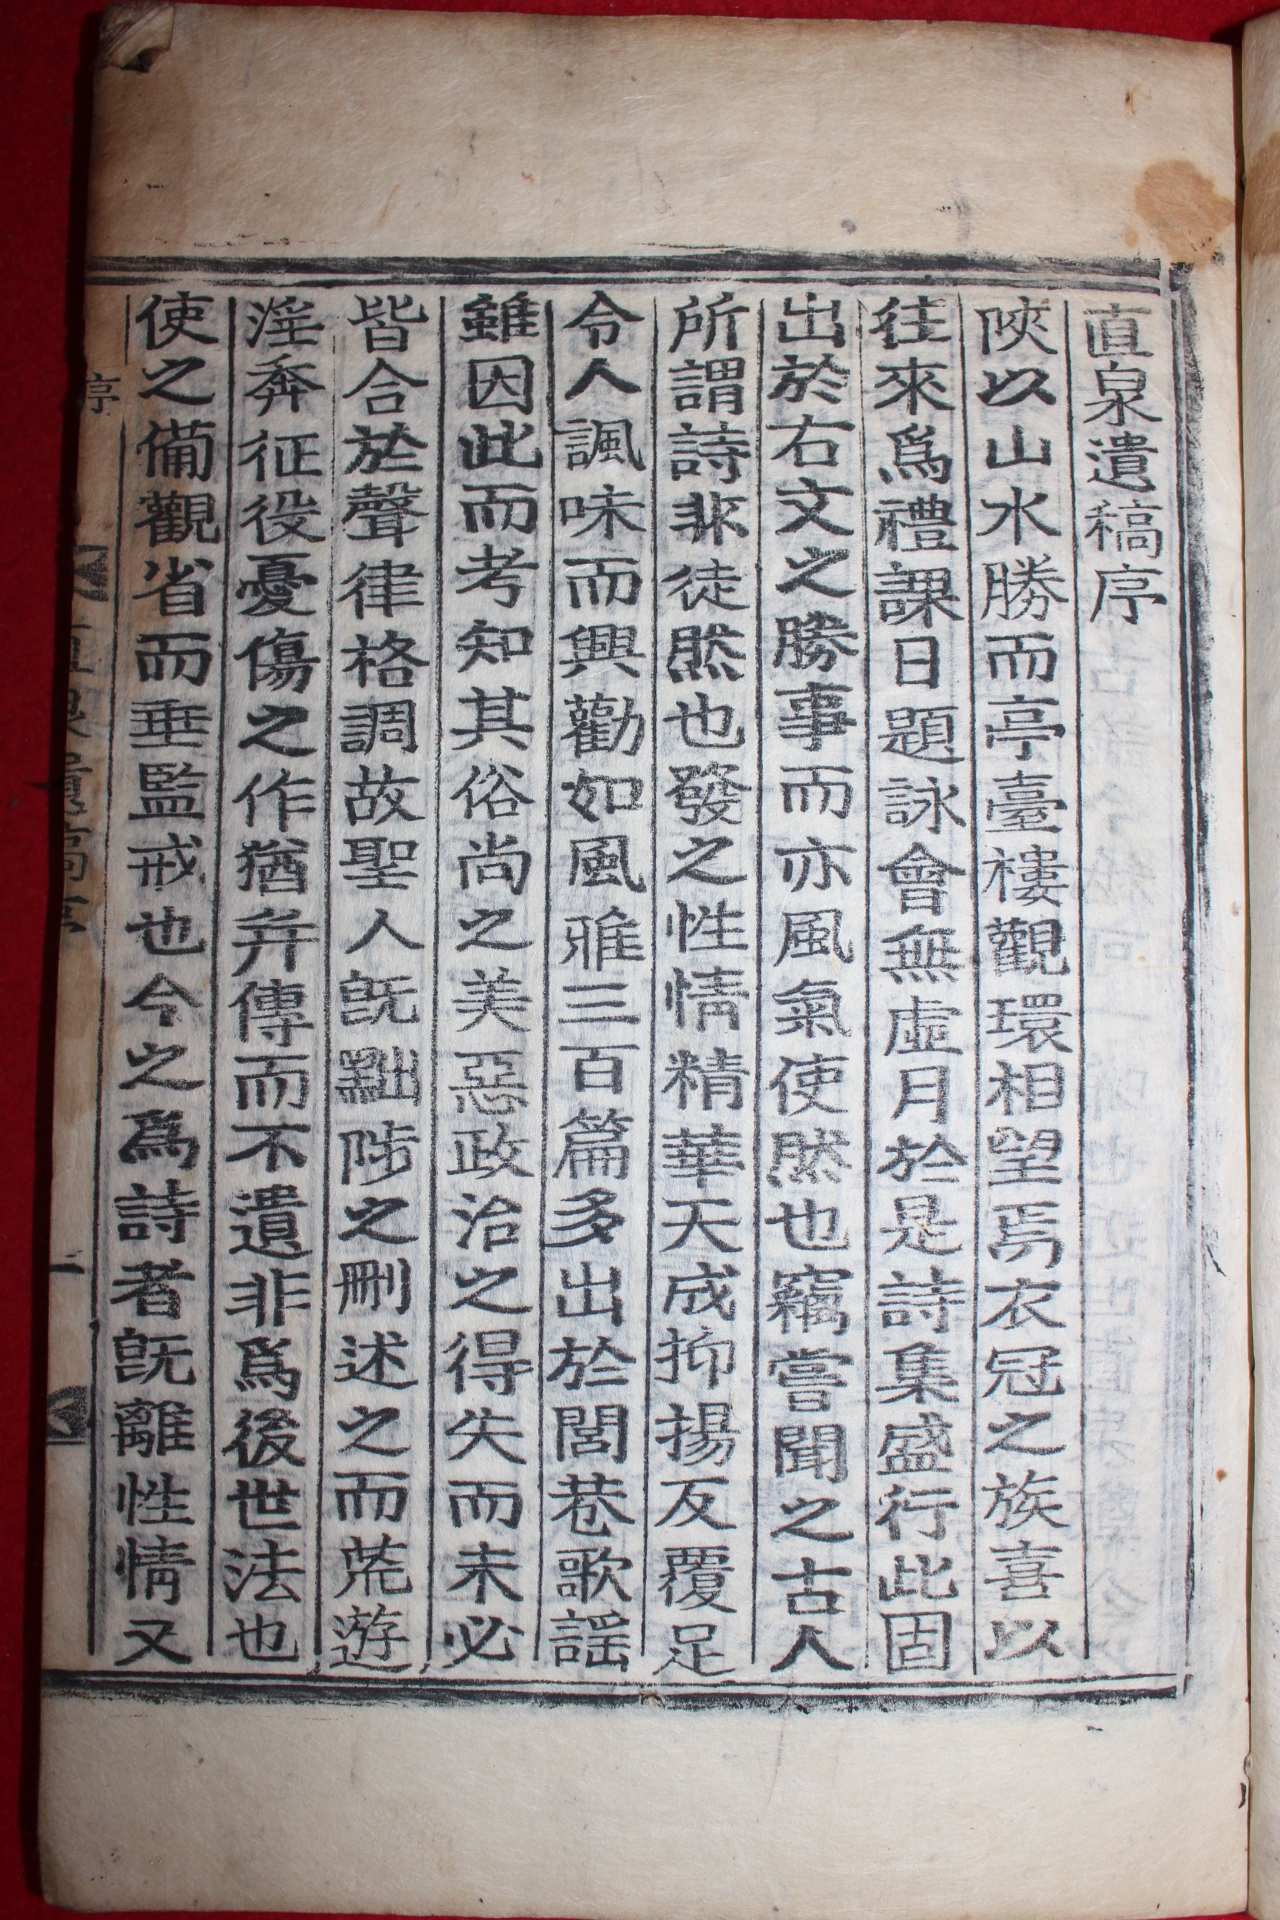 直泉遺稿序
陜以山水勝而亭臺樓觀環相望焉衣冠之族喜以
往來爲禮課日題詠會無虛月於是詩集盛行此固
出於右文之勝事而亦風氣使然也竊嘗聞之古人
所謂詩非徒然也發之性情精華天成抑揚反覆足
令人諷味而興勸如風雅三百篇多出於閭巷歌謡
雖因此而考知其俗尚之美惡政治之得失而未必
皆合於聲律格調故聖人旣黜陟之刪述之而荒遊
淫奔征役憂傷之作猶幷傳而不遺非爲後世法也
使之備觀省而垂監戒也今之爲詩者旣離性情又
序
直泉遺稿序
一